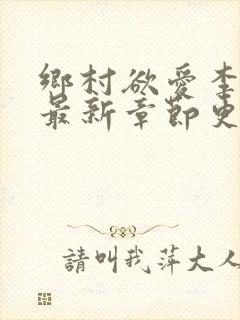 鄉村欲愛李
最新章節史
請叫我萍大人